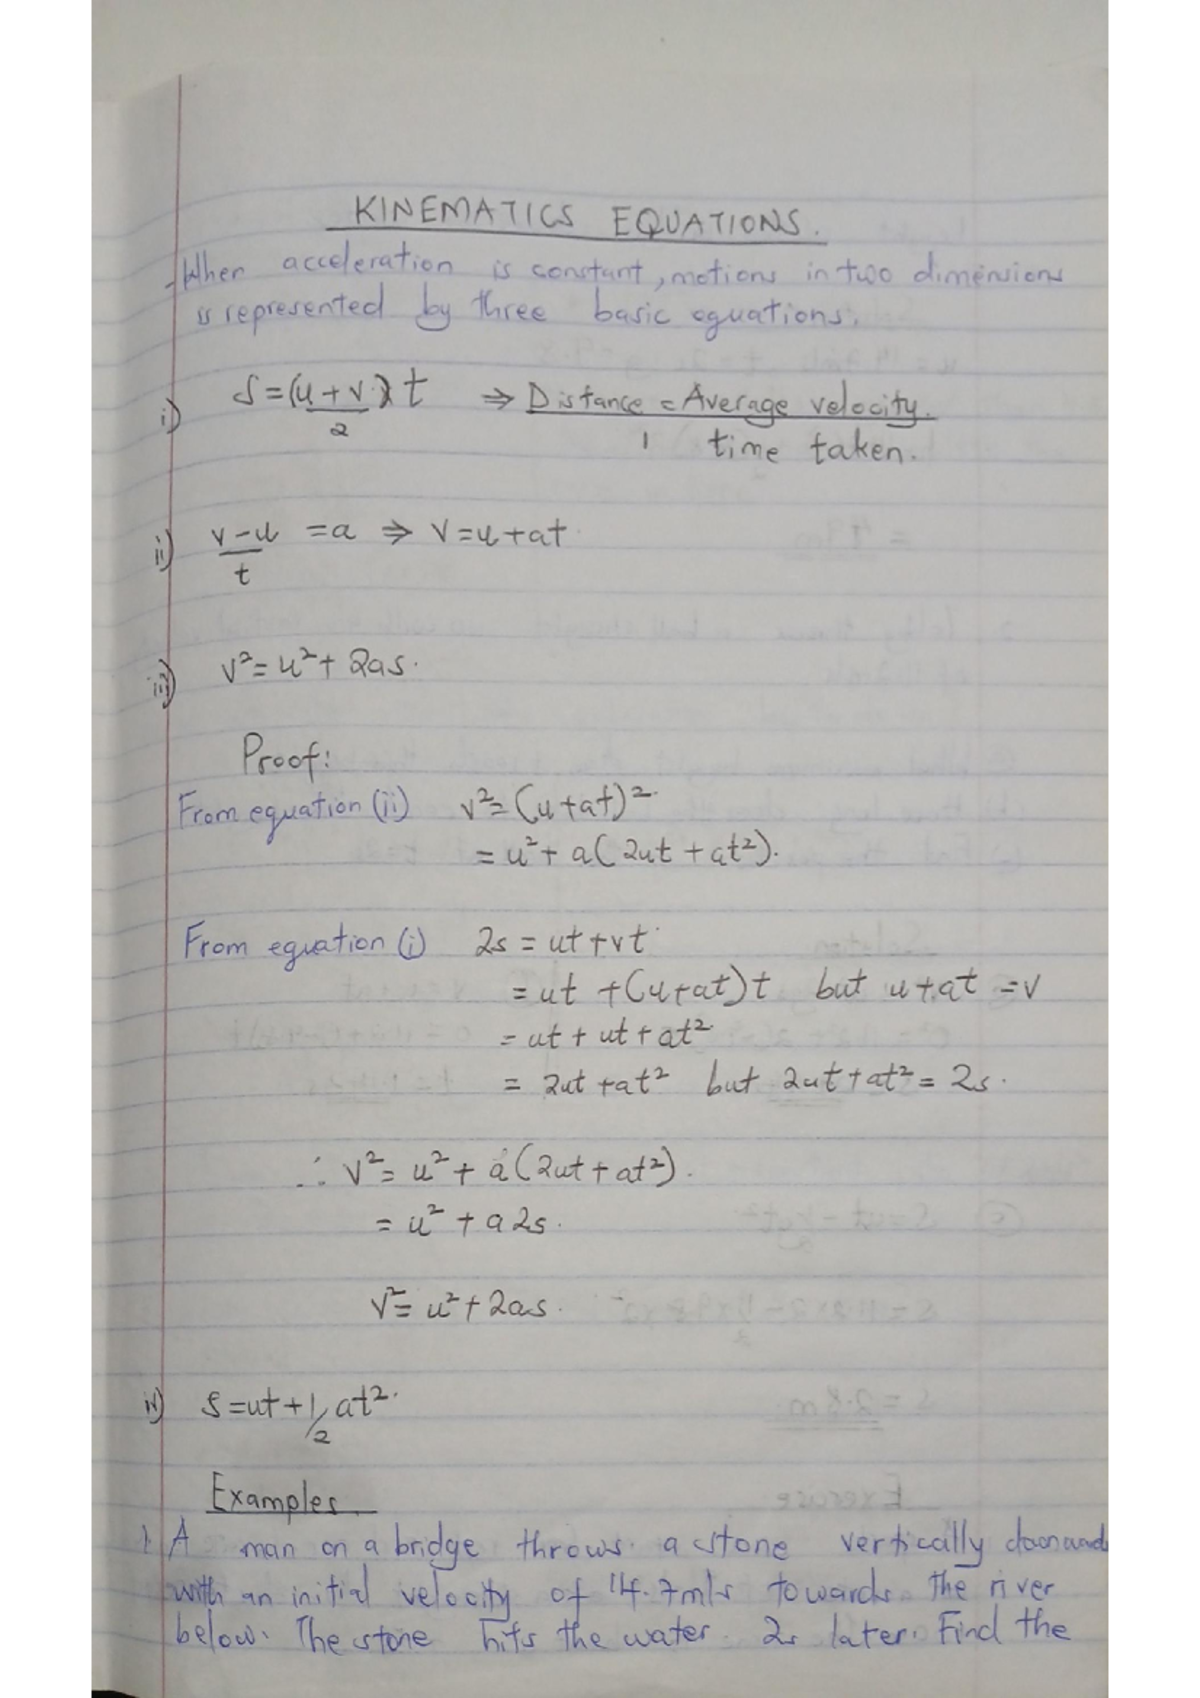 KINEMATICS EQUATIONS.
-When acceleration is constant, motions in two dimensions
is represented by three basic equations.
i) S=(u+v)t/2 ⇒ Distance/1 = Average velocity/time taken.
ii) v-u/t =a ⇒ v=u+at
iii) v²=u²+2as.
Proof:
From equation (ii) v²=(u+at)²
=u²+a(2ut+at²).
From equation (i) 2s=ut+vt
=ut+(u+at)t but u+at=v
=ut+ut+at²
=2ut+at² but 2ut+at²=2s.
∴ v²=u²+a(2ut+at²).
=u²+a2s.
v²=u²+2as.
iv) S=ut+1/2at².
Examples.
1. A man on a bridge throws a stone vertically downwards
with an initial velocity of 14.7m/s towards the river
below. The stone hits the water 2s later. Find the